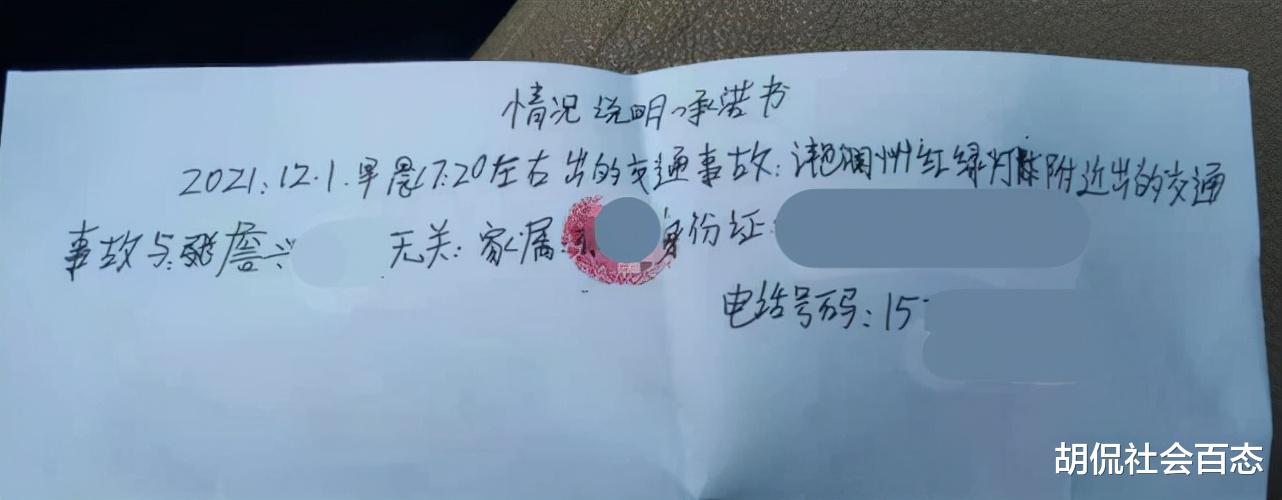 情况说明承诺书
2021.12.1.早晨7:20左右出的交通事故:润州红绿灯附近出的交通
事故与詹兴 无关:家属: 身份证:
电话号码:15
胡侃社会百态